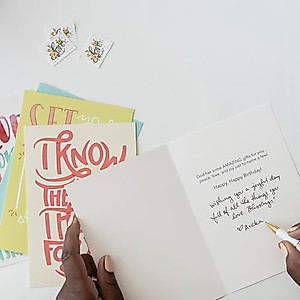 SET
I KNOW
THE
FO
God has some AMAZING gifts for you:
peace, love, and joy just to name a few!
Happy, Happy Birthday!
wishing you a joyful day
full of all the things you
love. Blessings!
♡ Anika